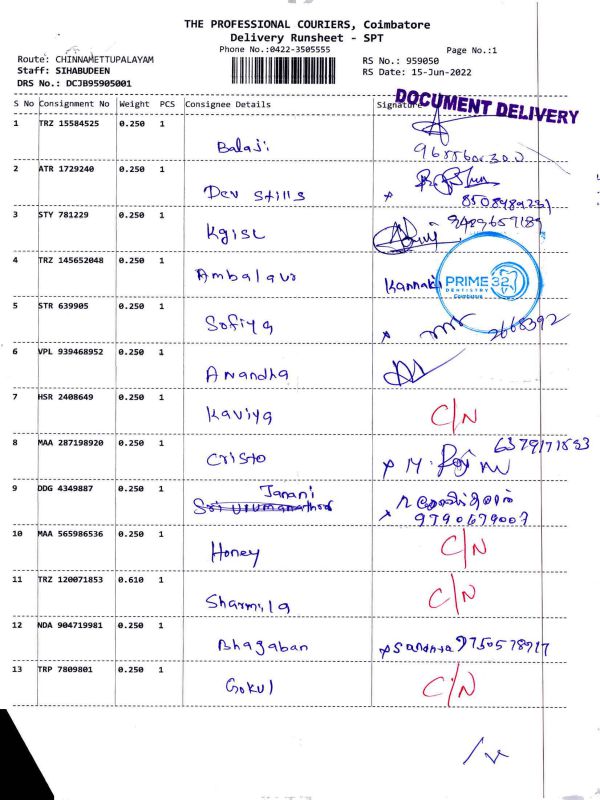 THE PROFESSIONAL COURIERS, Coimbatore
Delivery Runsheet - SPT
Phone No.:0422-3505555
Page No.:1
Route: CHINNAMETTUPALAYAM
Staff: SIHABUDEEN
DRS No.: DCJB95905001
RS No.: 959050
RS Date: 15-Jun-2022
DOCUMENT DELIVERY
S No Consignment No Weight PCS Consignee Details Signature
1 TRZ 15584525 0.250 1
Balaji
2 ATR 1729240 0.250 1
Dev stills
3 STY 781229 0.250 1
Kgisl 9489657189
4 TRZ 145652048 0.250 1
Ambalavr Kannaki
PRIME 32
DENTISTRY
Coimbatore
5 STR 639905 0.250 1
Sofiya 2668392
6 VPL 939468952 0.250 1
Anandha
7 HSR 2408649 0.250 1
Kaviya C/N
8 MAA 287198920 0.250 1
Cristo
9 DDG 4349887 0.250 1
Janani
9790679007
10 MAA 565986536 0.250 1
Honey C/N
11 TRZ 120071853 0.610 1
Sharmila C/N
12 NDA 904719981 0.250 1
Bhagaban
13 TRP 7809801 0.250 1
Gokul C/N